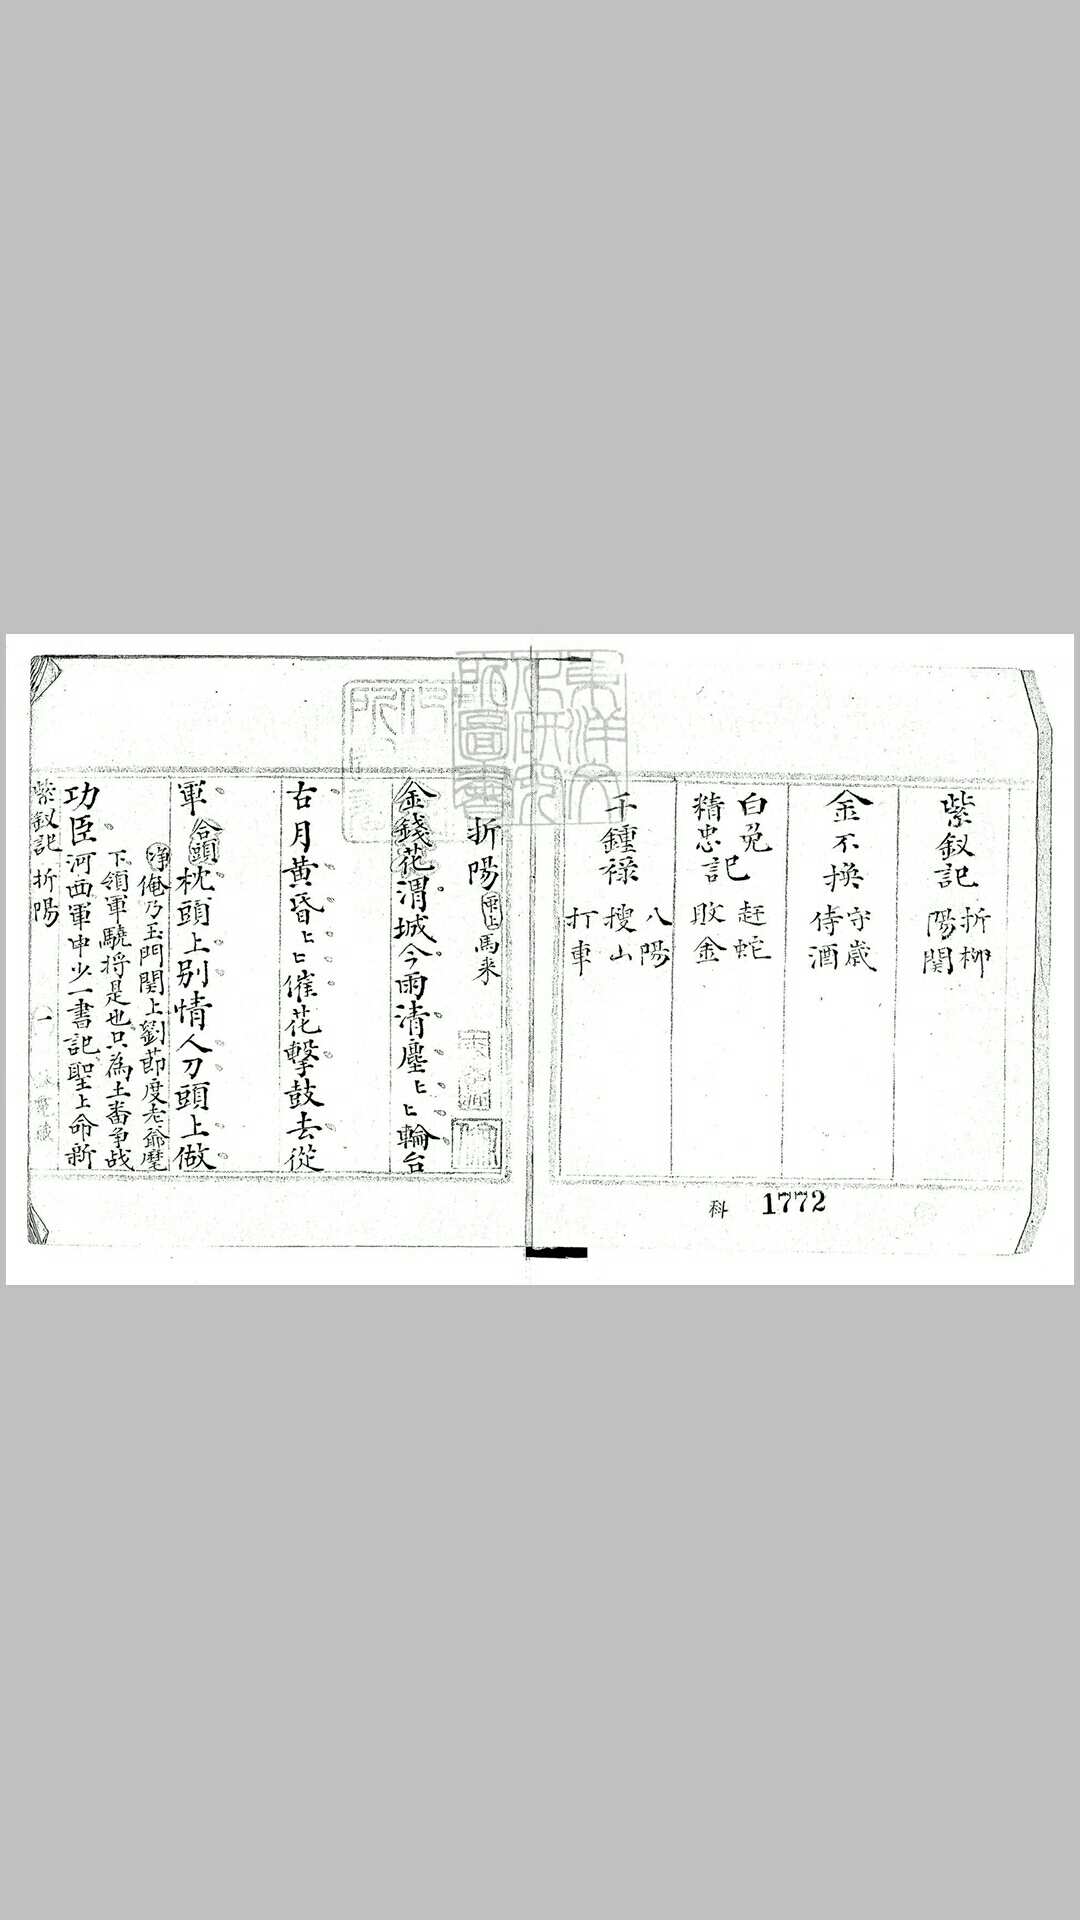 紫釵記 折柳 陽関
金不換 守歳 侍酒
白兔記 赶蛇
精忠記 敗金
千鍾祿 八陽 搜山 打車
科 1772
東洋文化研究所圖書
折陽 馬来
金錢花 渭城今雨清塵〻〻輪台
古月黃昏〻〻催花擊鼓去從
軍 合頭 枕頭上別情人刀頭上做
淨 俺乃玉門関上劉節度老爺麾
下領軍驍将是也只為土畨争战
功臣河西軍中少一書記聖上命新
紫釵記 折陽 一